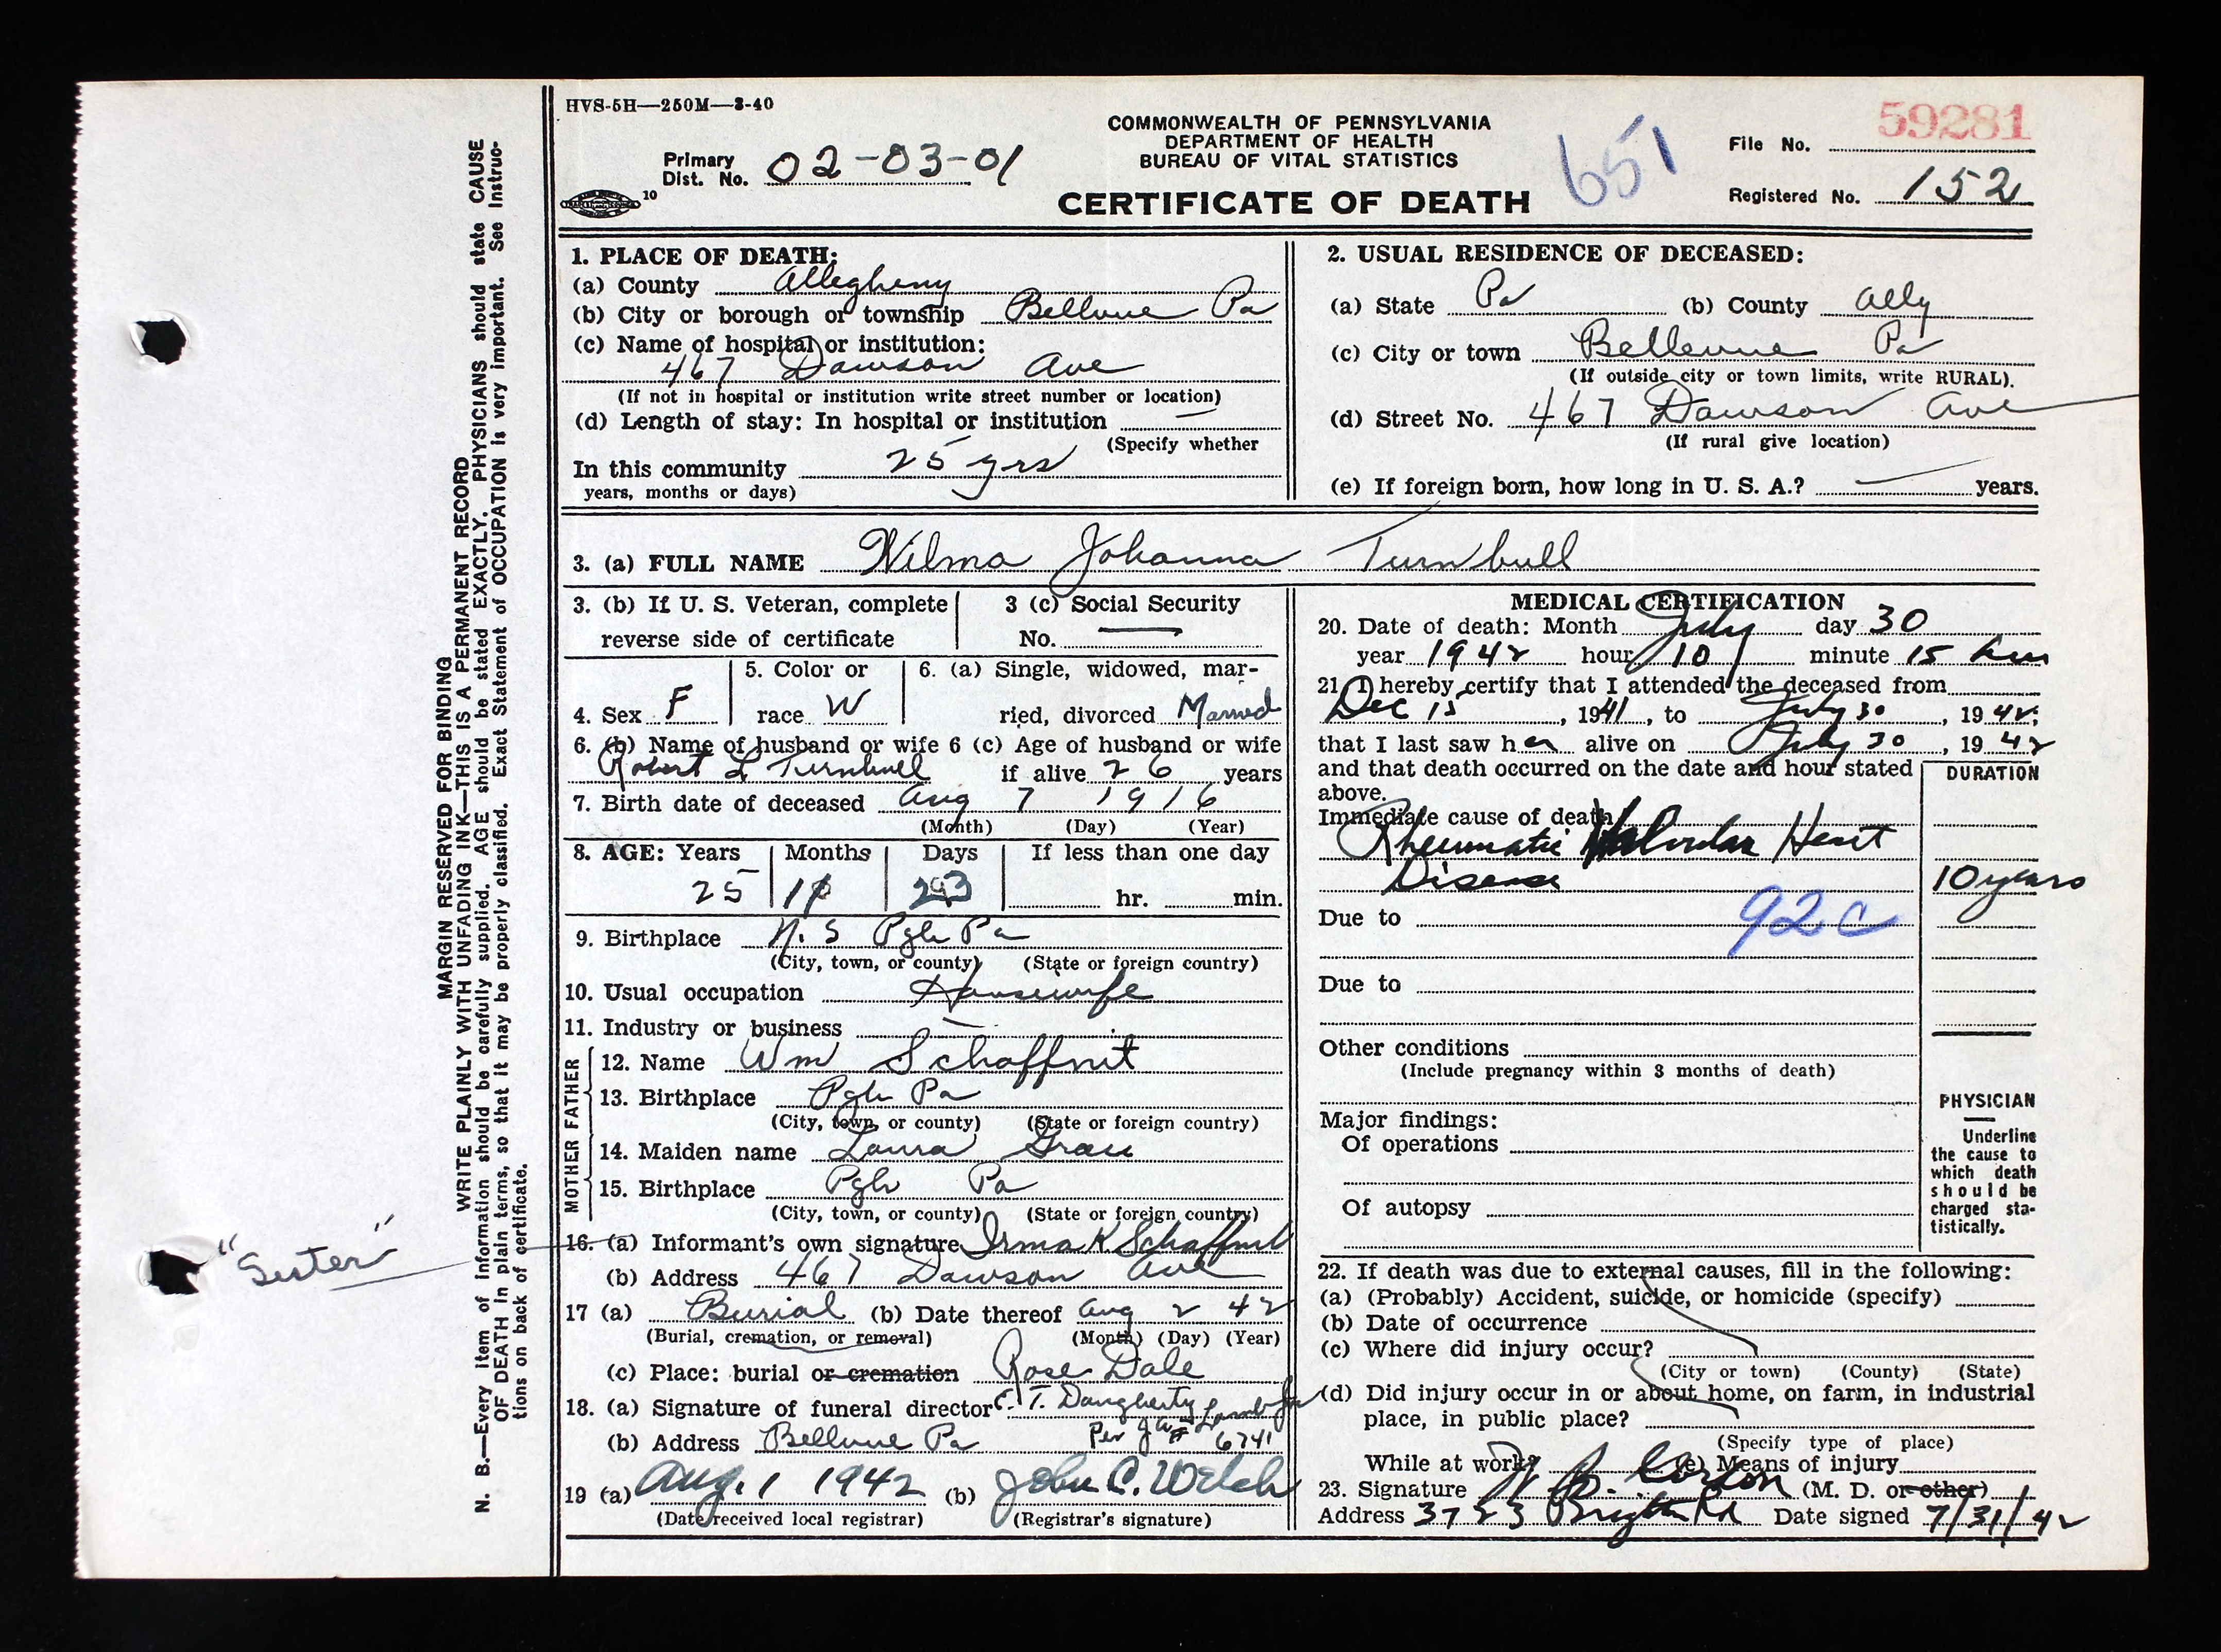 HVS-5H—250M—3-40
59281
COMMONWEALTH OF PENNSYLVANIA
DEPARTMENT OF HEALTH
BUREAU OF VITAL STATISTICS
CERTIFICATE OF DEATH
651
Primary Dist. No. 02-03-01
10
File No.
Registered No. 152
MARGIN RESERVED FOR BINDING
WRITE PLAINLY WITH UNFADING INK—THIS IS A PERMANENT RECORD
N. B.—Every item of information should be carefully supplied. AGE should be stated EXACTLY. PHYSICIANS should state CAUSE
OF DEATH in plain terms, so that it may be properly classified. Exact Statement of OCCUPATION is very important. See Instruc-
tions on back of certificate.
1. PLACE OF DEATH:
(a) County Allegheny
(b) City or borough or township Bellevue Pa
(c) Name of hospital or institution:
467 Dawson Ave
(If not in hospital or institution write street number or location)
(d) Length of stay: In hospital or institution —
(Specify whether
In this community 25 yrs
years, months or days)
2. USUAL RESIDENCE OF DECEASED:
(a) State Pa (b) County Ally
(c) City or town Bellevue Pa
(If outside city or town limits, write RURAL).
(d) Street No. 467 Dawson Ave
(If rural give location)
(e) If foreign born, how long in U. S. A.? — years.
3. (a) FULL NAME Wilma Johanna Turnbull
3. (b) If U. S. Veteran, complete
reverse side of certificate
3 (c) Social Security
No. —
4. Sex F
5. Color or
race W
6. (a) Single, widowed, mar-
ried, divorced Married
6. (b) Name of husband or wife 6 (c) Age of husband or wife
Robert L Turnbull if alive 26 years
7. Birth date of deceased Aug 7 1916
(Month) (Day) (Year)
8. AGE: Years Months Days If less than one day
25 11 23 hr. min.
9. Birthplace N. S Pgh Pa
(City, town, or county) (State or foreign country)
10. Usual occupation Housewife
11. Industry or business —
FATHER
12. Name Wm Schaffnit
13. Birthplace Pgh Pa
(City, town, or county) (State or foreign country)
MOTHER
14. Maiden name Laura Grau
15. Birthplace Pgh Pa
(City, town, or county) (State or foreign country)
"Sister"
16. (a) Informant's own signature Irma K Schaffnit
(b) Address 467 Dawson Ave
17 (a) Burial (b) Date thereof Aug 2 42
(Burial, cremation, or removal) (Month) (Day) (Year)
(c) Place: burial or cremation Rose Dale
18. (a) Signature of funeral director C. T. Daugherty
Per J A Lamb Jr
(b) Address Bellevue Pa # 6741
19 (a) Aug. 1 1942 (b) John C. Welch
(Date received local registrar) (Registrar's signature)
MEDICAL CERTIFICATION
20. Date of death: Month July day 30
year 1942 hour 10 minute 15
21. I hereby certify that I attended the deceased from
Dec 15, 1941, to July 30, 1942;
that I last saw her alive on July 30, 1942
and that death occurred on the date and hour stated
above.
DURATION
Immediate cause of death
Rheumatic Valvular Heart
Disease 10 years
Due to 92c
Due to
Other conditions
(Include pregnancy within 3 months of death)
Major findings:
Of operations
Of autopsy
PHYSICIAN
Underline
the cause to
which death
should be
charged sta-
tistically.
22. If death was due to external causes, fill in the following:
(a) (Probably) Accident, suicide, or homicide (specify)
(b) Date of occurrence
(c) Where did injury occur?
(City or town) (County) (State)
(d) Did injury occur in or about home, on farm, in industrial
place, in public place?
(Specify type of place)
While at work? (e) Means of injury
23. Signature (M. D. or other)
Address 3723 Brighton Rd Date signed 7/31/42